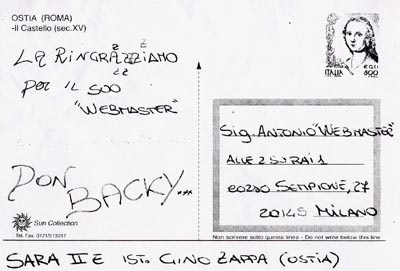 OSTIA (ROMA)
-Il Castello (sec.XV)
LA RINGRAZZIAMO
zz
zz
PER IL SUO
"WEBMASTER"
DON
BACKY...
Sun Collection
Tel. Fax. 0771/513017
ITALIA
800
Sig. ANTONIO "WEBMASTER"
ALLE 2 SU RAI 1
SEMPIONE, 27
20145 MILANO
Non scrivere sotto questa linea - Do not write below this line
SARA II E IST. GINO ZAPPA (OSTIA)